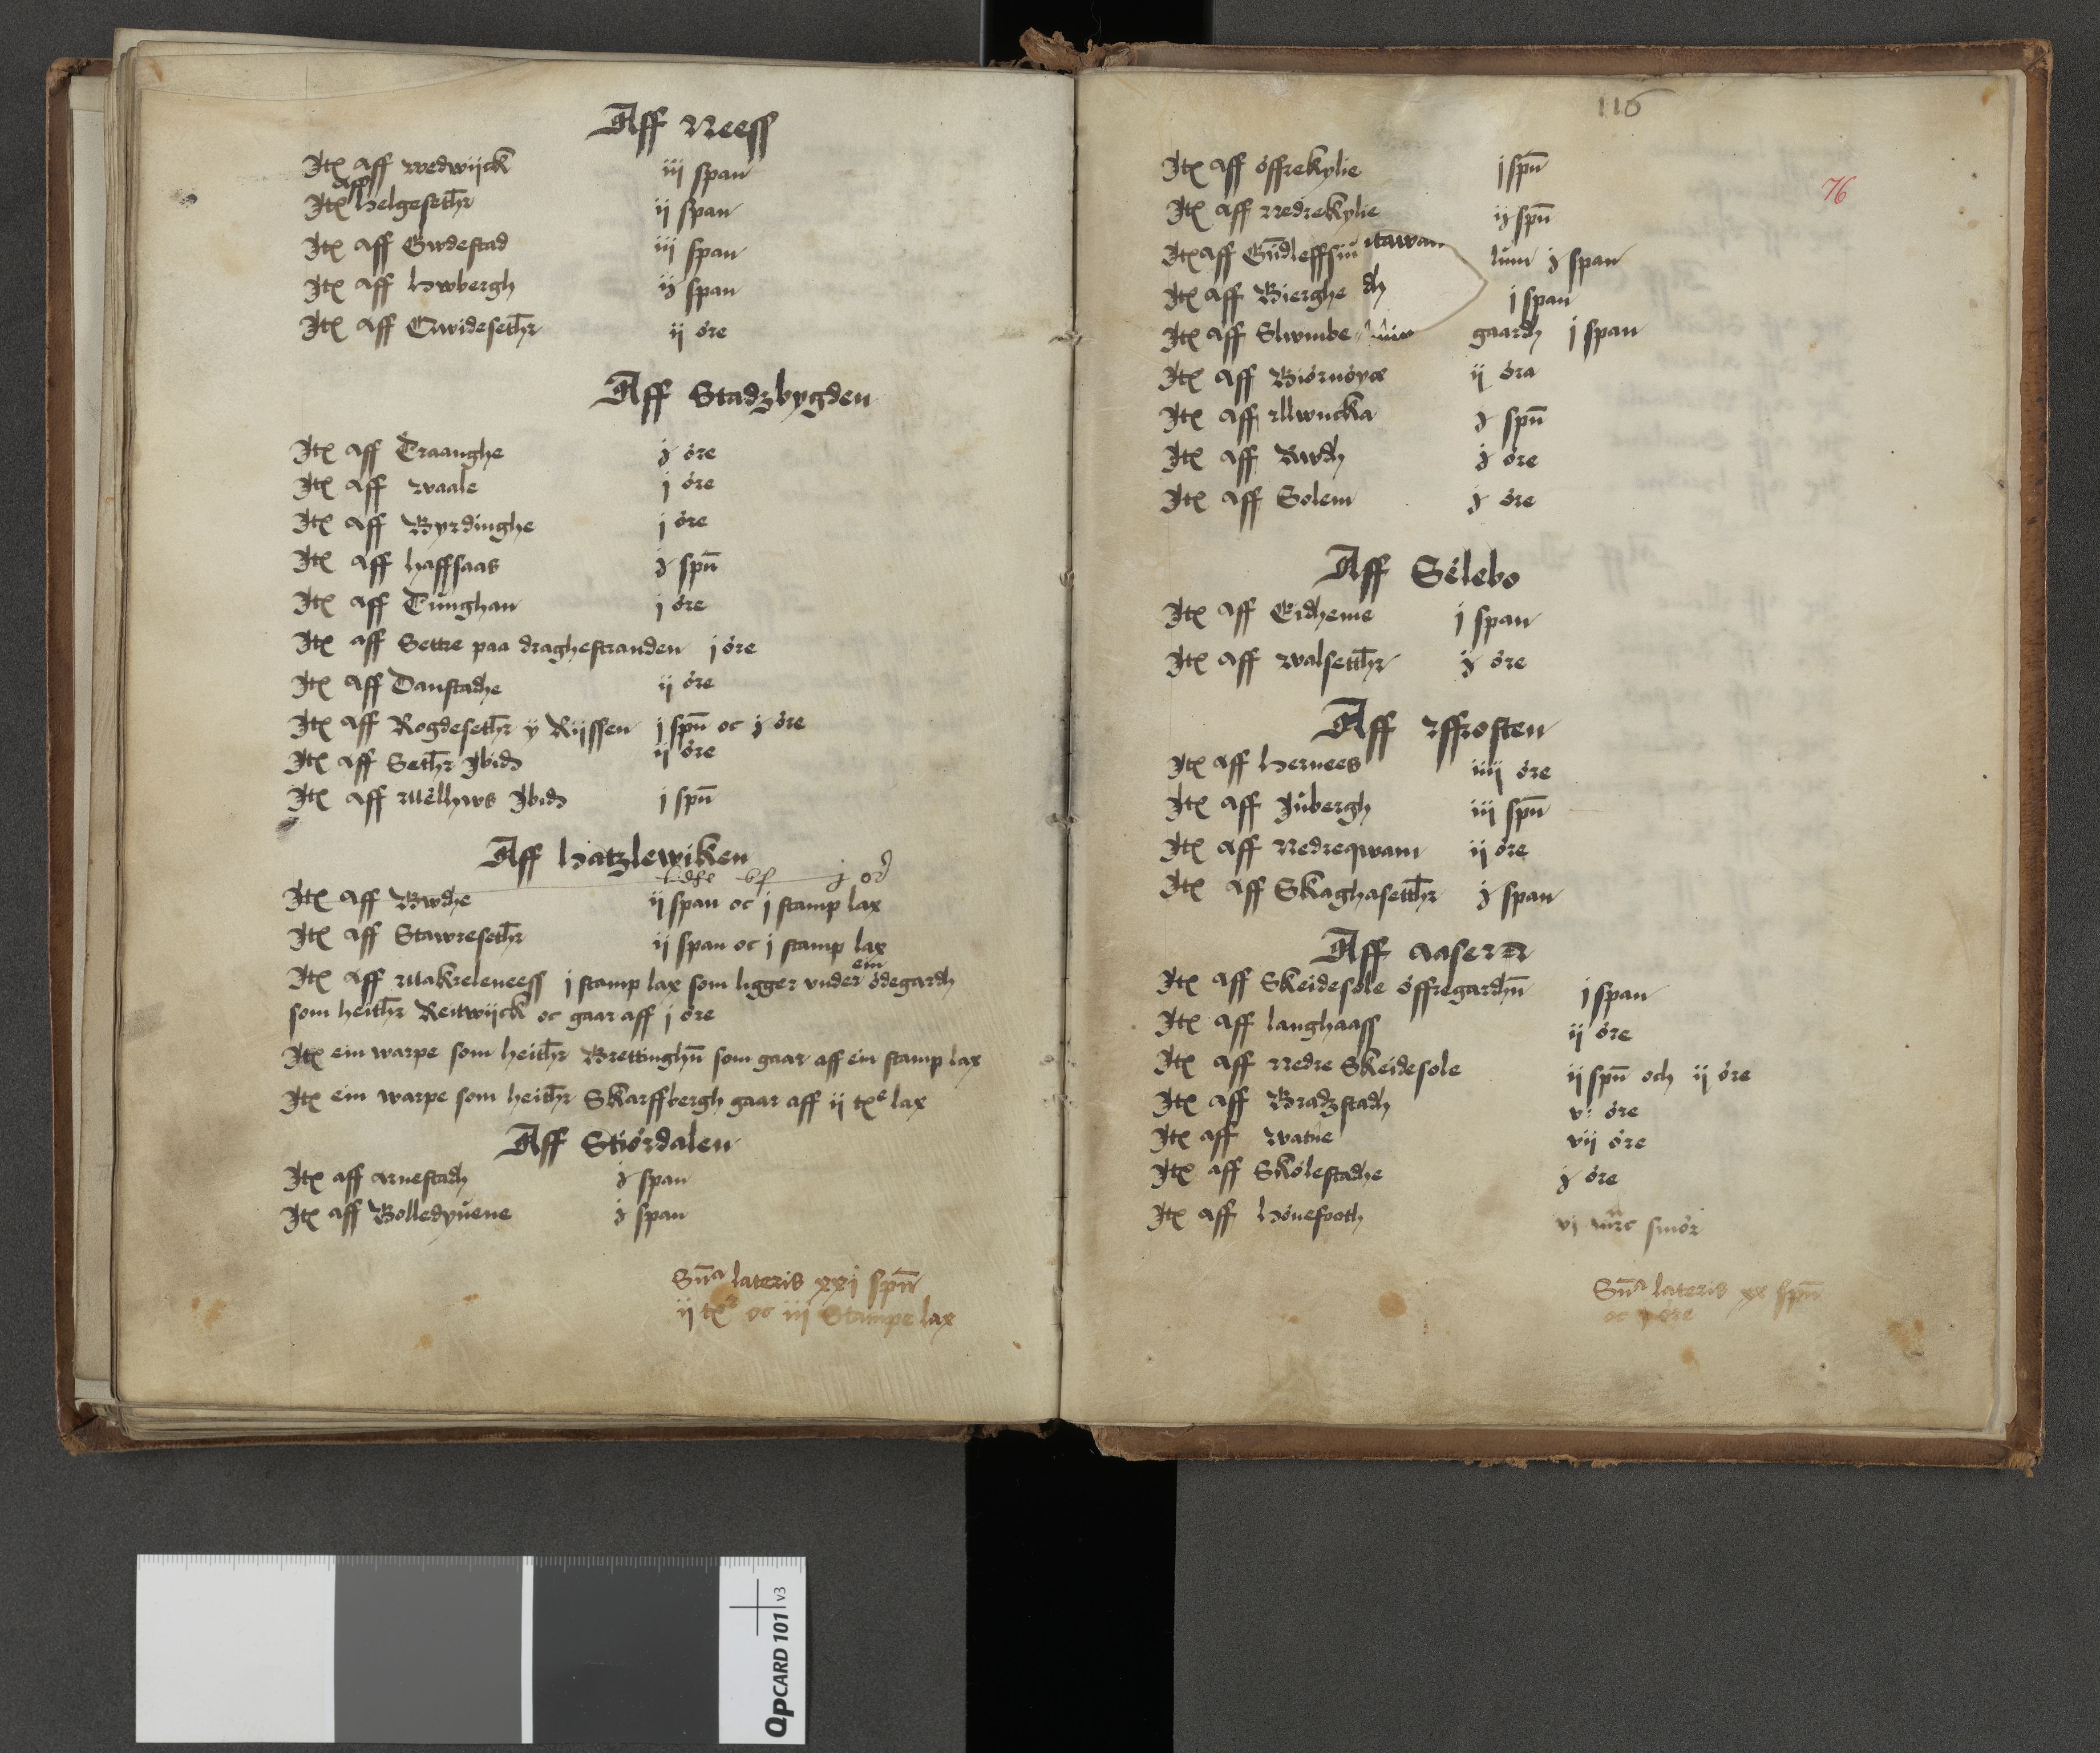 Aff Neess
Itꝫ aff wedwijck iij span
Itꝫ aff helgesethr ij span
Itꝫ aff Gwdestad iij span
Itꝫ aff hwbergh ij span
Itꝫ aff Qwidesethr ij öre
Aff Stadzbygden
Itꝫ aff Traanghe j öre
Itꝫ aff waale j öre
Itꝫ aff Byrdinghe j öre
Itꝫ aff haffsaas j spn̄
Itꝫ aff Tůnghan j öre
Itꝫ aff Settre paa draghestranden j öre
Itꝫ aff Danstadhe ij öre
Itꝫ aff Rogdesethr ÿ Rijssen j spn̄ oc j öre
Itꝫ aff Sethr Ibid ij öre
Itꝫ aff Mëlhws Ibid j spn̄
Aff hatzlewiken
Itꝫ aff Bwdhe ij span oc j stamp lax
Itꝫ aff Stawresethr ij span oc j stamp lax
Itꝫ aff Makreleneess j stamp lax som ligger vnder ein ödegardh
som heithr Reitwijck oc gaar aff j öre
Itꝫ ein warpe som heithr Brettinghn̄ som gaar aff ein stamp lax
Itꝫ ein warpe som heithr Skarffbergh gaar aff ij tꝫᵉ lax
Aff Stiördalen
Itꝫ aff arnestadh j span
Itꝫ aff Bolledyůene j span
Sn̄ᵃ lateris xxj spn̄
ij tꝫᵉ oc iij Stampe lax
116
76
Itꝫ aff öffrekylie j spn̄
Itꝫ aff Nedrekylie ij spn̄
Itꝫ aff Gůdleffsiu lům j span
Itꝫ aff Bierghe j span
Itꝫ aff Slwmbe gaardh j span
Itꝫ aff Biörnöyæ ij öra
Itꝫ aff Mwncka j spn̄
Itꝫ aff Rwdh j öre
Itꝫ aff Solem j öre
Aff Sëlebo
Itꝫ aff Eidheme j span
Itꝫ aff walsetthr ij öre
Aff Ffrosten
Itꝫ aff hernees iiij öre
Itꝫ aff Jůbergh iij spn̄
Itꝫ aff Nedreqwam ij öre
Itꝫ aff Skaghasetthr j span
Aff aasern
Itꝫ aff Skeidesole öffregardhn̄ j span
Itꝫ aff langhaass ij öre
Itꝫ aff Nedre Skeidesole ij spn̄ och ij öre
Itꝫ aff Bradzstadh vi öre
Itꝫ aff watne vij öre
Itꝫ aff Skölestadhe j öre
Itꝫ aff hönefooth vj mrc smör
Sn̄ᵃ lateris xx spn̄
oc öre